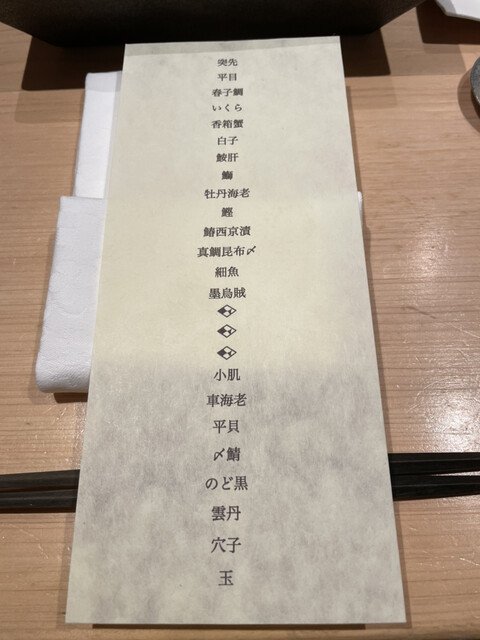 突先
平目
春子鯛
いくら
香箱蟹
白子
鮟肝
鰤
牡丹海老
鰹
鰆西京漬
真鯛昆布〆
細魚
墨烏賊
小肌
車海老
平貝
〆鯖
のど黒
雲丹
穴子
玉